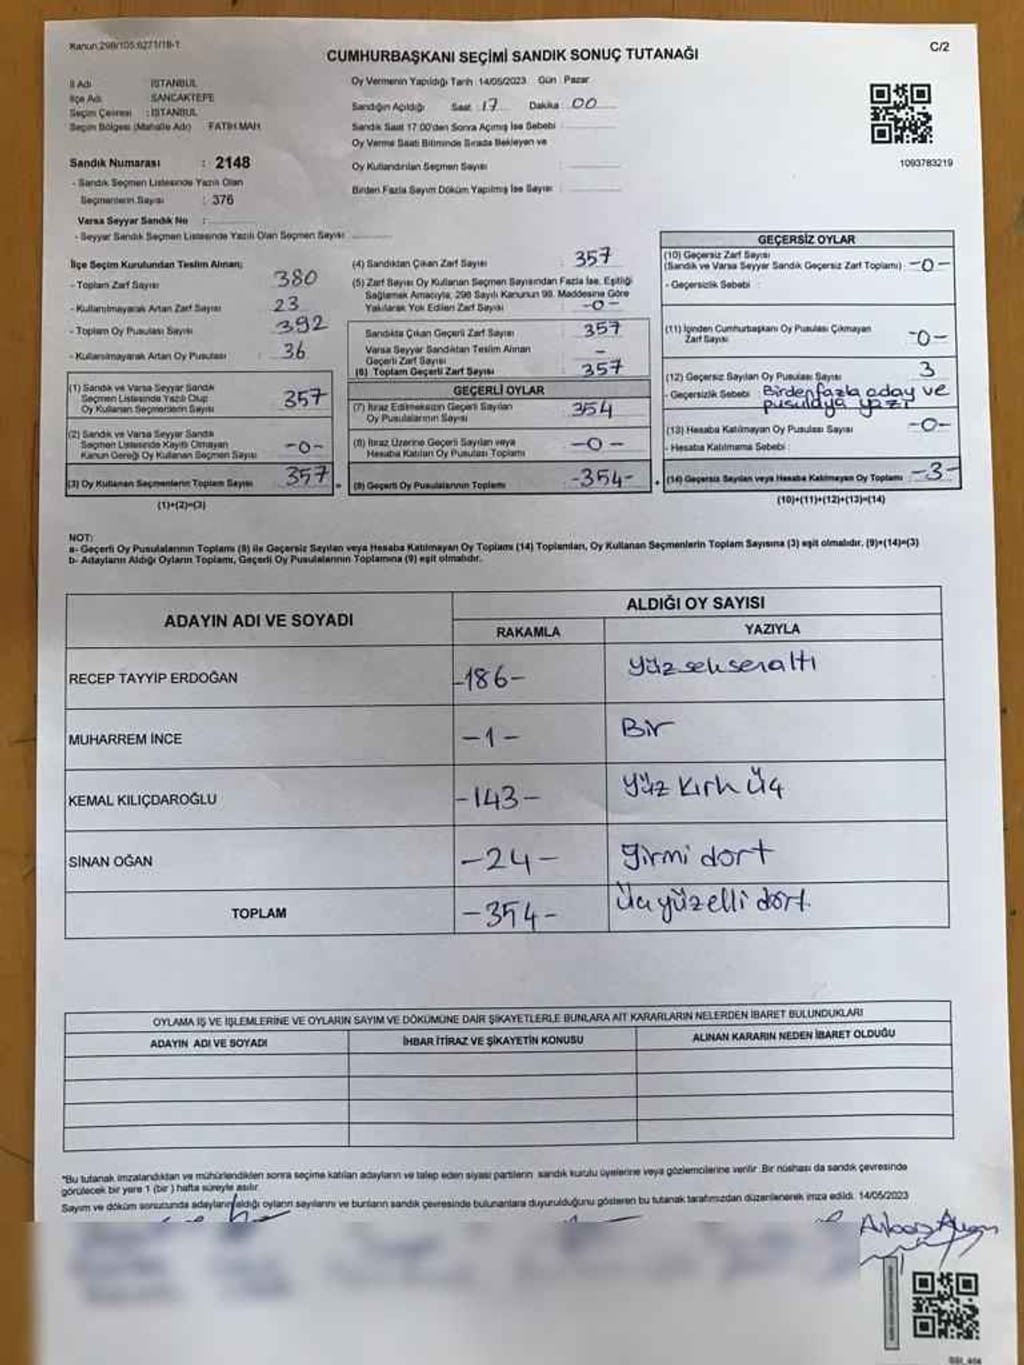 Kanun:298/105;6271/18-1
C/2
CUMHURBAŞKANI SEÇİMİ SANDIK SONUÇ TUTANAĞI
İl Adı : İSTANBUL
İlçe Adı SANCAKTEPE
Seçim Çevresi : İSTANBUL
Seçim Bölgesi (Mahalle Adı) FATİH MAH.
Sandık Numarası : 2148
- Sandık Seçmen Listesinde Yazılı Olan
Seçmenlerin Sayısı : 376
Varsa Seyyar Sandık No :
- Seyyar Sandık Seçmen Listesinde Yazılı Olan Seçmen Sayısı
Oy Vermenin Yapıldığı Tarih : 14/05/2023 Gün : Pazar
Sandığın Açıldığı Saat : 17 Dakika : 00
Sandık Saat 17:00'den Sonra Açılmış İse Sebebi :
Oy Verme Saati Bitiminde Sırada Bekleyen ve
Oy Kullandırılan Seçmen Sayısı :
Birden Fazla Sayım Döküm Yapılmış İse Sayısı :
1093783219
İlçe Seçim Kurulundan Teslim Alınan;
- Toplam Zarf Sayısı : 380
- Kullanılmayarak Artan Zarf Sayısı : 23
- Toplam Oy Pusulası Sayısı : 392
- Kullanılmayarak Artan Oy Pusulası : 36
(1) Sandık ve Varsa Seyyar Sandık
Seçmen Listesinde Yazılı Olup
Oy Kullanan Seçmenlerin Sayısı : 357
(2) Sandık ve Varsa Seyyar Sandık
Seçmen Listesinde Kayıtlı Olmayan
Kanun Gereği Oy Kullanan Seçmen Sayısı : -0-
(3) Oy Kullanan Seçmenlerin Toplam Sayısı : 357
(1)+(2)=(3)
(4) Sandıktan Çıkan Zarf Sayısı : 357
(5) Zarf Sayısı Oy Kullanan Seçmen Sayısından Fazla İse, Eşitliği
Sağlamak Amacıyla, 298 Sayılı Kanunun 98. Maddesine Göre
Yakılarak Yok Edilen Zarf Sayısı : -0-
Sandıkta Çıkan Geçerli Zarf Sayısı : 357
Varsa Seyyar Sandıktan Teslim Alınan
Geçerli Zarf Sayısı : -
(6) Toplam Geçerli Zarf Sayısı : 357
GEÇERLİ OYLAR
(7) İtiraz Edilmeksizin Geçerli Sayılan
Oy Pusulalarının Sayısı : 354
(8) İtiraz Üzerine Geçerli Sayılan veya
Hesaba Katılan Oy Pusulası Toplamı : -0-
(9) Geçerli Oy Pusulalarının Toplamı : -354-
GEÇERSİZ OYLAR
(10) Geçersiz Zarf Sayısı
(Sandık ve Varsa Seyyar Sandık Geçersiz Zarf Toplamı) : -0-
- Geçersizlik Sebebi :
(11) İçinden Cumhurbaşkanı Oy Pusulası Çıkmayan
Zarf Sayısı : -0-
(12) Geçersiz Sayılan Oy Pusulası Sayısı : 3
- Geçersizlik Sebebi : Birden fazla aday ve
pusulaya yazı
(13) Hesaba Katılmayan Oy Pusulası Sayısı : -0-
- Hesaba Katılmama Sebebi :
(14) Geçersiz Sayılan veya Hesaba Katılmayan Oy Toplamı : -3-
(10)+(11)+(12)+(13)=(14)
NOT:
a- Geçerli Oy Pusulalarının Toplamı (9) ile Geçersiz Sayılan veya Hesaba Katılmayan Oy Toplamı (14) Toplamları, Oy Kullanan Seçmenlerin Toplam Sayısına (3) eşit olmalıdır. (9)+(14)=(3)
b- Adayların Aldığı Oyların Toplamı, Geçerli Oy Pusulalarının Toplamına (9) eşit olmalıdır.
ADAYIN ADI VE SOYADI
ALDIĞI OY SAYISI
RAKAMLA YAZIYLA
RECEP TAYYİP ERDOĞAN -186- Yüz seksen altı
MUHARREM İNCE -1- Bir
KEMAL KILIÇDAROĞLU -143- Yüz Kırk Üç
SİNAN OĞAN -24- Yirmi dört
TOPLAM -354- Üçyüzelli dört
OYLAMA İŞ VE İŞLEMLERİNE VE OYLARIN SAYIM VE DÖKÜMÜNE DAİR ŞİKAYETLERLE BUNLARA AİT KARARLARIN NELERDEN İBARET BULUNDUKLARI
ADAYIN ADI VE SOYADI İHBAR İTİRAZ VE ŞİKAYETİN KONUSU ALINAN KARARIN NEDEN İBARET OLDUĞU
*Bu tutanak imzalandıktan ve mühürlendikten sonra seçime katılan adayların ve talep eden siyasi partilerin sandık kurulu üyelerine veya gözlemcilerine verilir. Bir nüshası da sandık çevresinde
görülecek bir yere 1 (bir) hafta süreyle asılır.
Sayım ve döküm sonucunda adayların aldığı oyların sayılarını ve bunların sandık çevresinde bulunanlara duyurulduğunu gösteren bu tutanak tarafımızdan düzenlenerek imza edildi. 14/05/2023